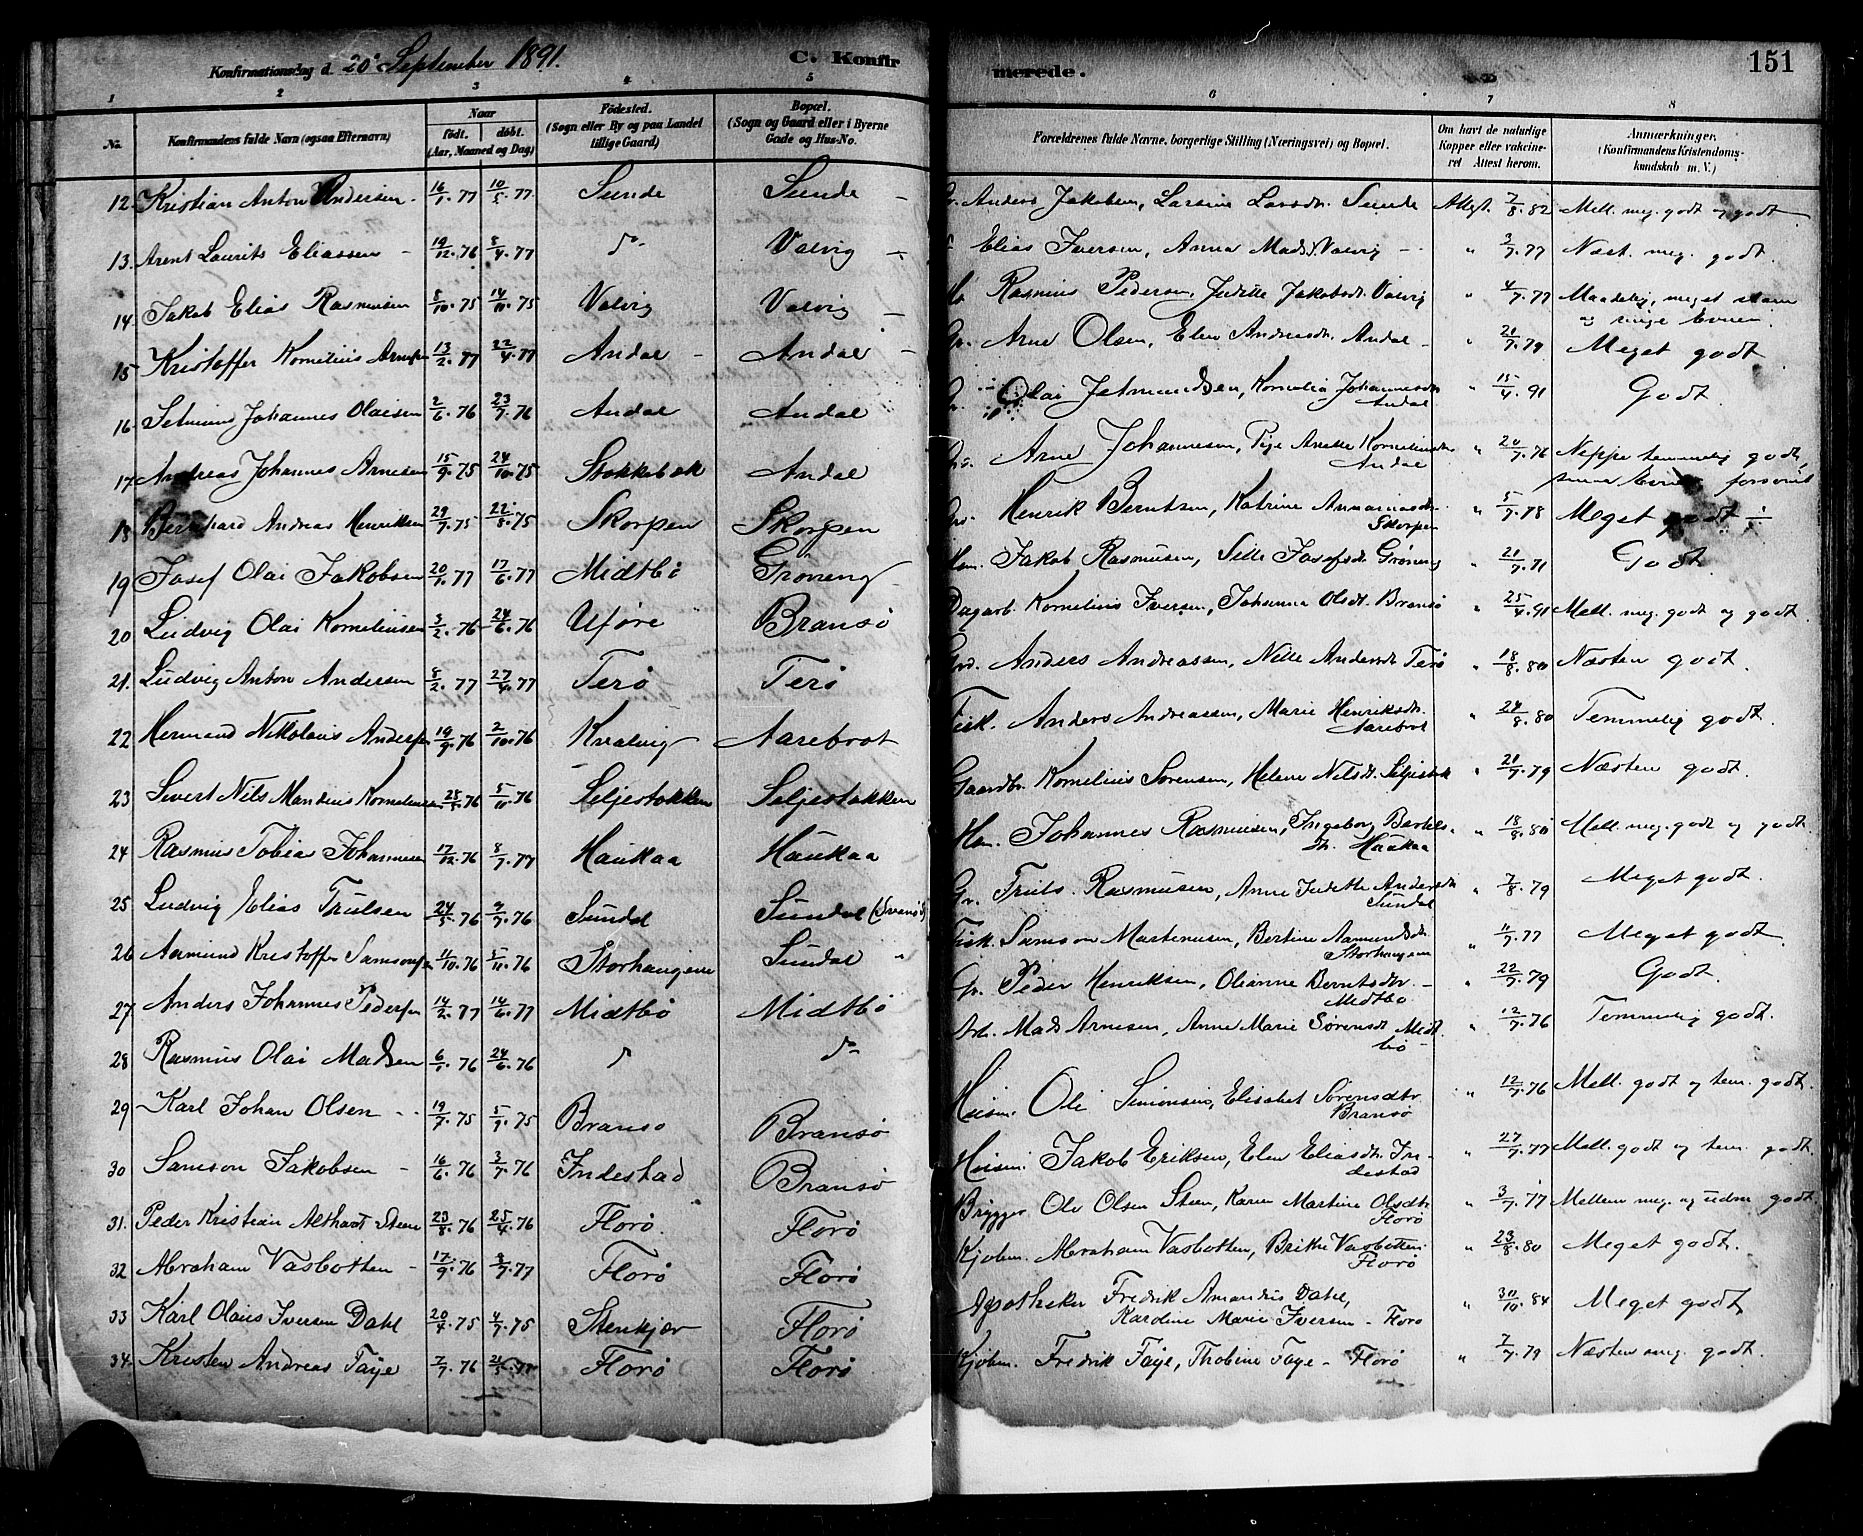 Konfirmationsdag d. 20 September 1891. C. Konfir merede. 151
1 2 3 4 5 6 7 8
No. Konfirmandens fulde Navn (ogsaa Efternavn) Naar født. døbt. (Aar, Maaned og Dag) Fødested. (Sogn eller By og paa Landet tillige Gaard) Bopæl. (Sogn og Gaard eller i Byerne Gade og Hus-No. Forældrenes fulde Navne, borgerlige Stilling (Næringsvei) og Bopæl. Om havt de naturlige Kopper eller vakcineret Attest herom. Anmærkninger. (Konfirmandens Kristendomskundskab m. V.)
12. Kristian Anton Andersen - 16/1.77 10/5.77 Sunde Sunde - Anders Jakobsen, Larsine Larsdr. Sunde Attest. 7/8.82 Mell. meg. godt og godt
13. Arent Laurits Eliassen - 19/12.76 8/4.77 do Valvig Elias Iversen, Anna Madsd. Valvig - " 3/7.77 Næst. meg. godt.
14. Jakob Elias Rasmusen 8/10.75 14/11.75 Valvig Valvig - Rasmus Pedersen, Judithe Jakobsdr. Valvig " 4/7.77 Maadelig, meget
og ringe Evner.
15 Kristoffer Kornelius Arnesen 13/2.77 22/4.77 Andal - Andal - Gr. Arne Olsen, Elen Andreasdr. Andal - " 21/7.79 Meget godt
16. Johannes Olaisen 2/6.76 23/7.76 Andal Andal Gr. Olai Jetmundsen, Kornelia Johannesdr. Andal " 15/4.91 Godt.
17. Andreas Johannes Arnesen 15/9.75 24/10.75 Stokkebæk Andal Arne Johannesen, Anette Kornelisdr. Andal " 20/7.76 Neppe temmelig godt,
Evner
18 Bernhard Andreas Henriksen 29/7.75 22/8.75 Skorpen Skorpen Henrik Berntsen, Katrine Skorpen " 5/7.78 Meget godt
19 Josef Olai Jakobsen 20/1.77 17/6.77 Midtbø Grøneng Jakob Rasmusen, Sille Josefsdr. Grøneng " 21/7.71 Godt.
20 Ludvig Olai Korneliusen 3/2.76 24/6.76 Uføre Bransø Dagarb. Kornelius Iversen, Johanna Olsdr. Bransø " 25/4.91 Mell. meg. godt og godt.
21. Ludvig Anton Andersen 8/2.77 27/4.77 Terø Terø Anders Andreassen, Nille Andersdr. Terø " 18/8.80 Næsten godt.
22 Hermand Nikolais Andersen 19/9.76 2/10.76 Kvalvig Aarebrot Fisk. Anders Andreassen, Marie Henriksdr. Aarebrot " 24/8.80 Temmelig godt.
23 Sivert Nils Mandius Korneliusen 25/5.76 5/11.76 Seljestokken Seljestokken Gaardbr. Kornelius Sørensen, Helene Nilsdr. Seljestok " 21/7.79 Næsten godt.
24 Rasmus Tobias Johannesen 17/12.76 8/7.77 Haukaa Haukaa Johannes Rasmusen, Ingeborg Bertelsdr. Haukaa " 18/8.80 Mell. meg. godt og godt.
25 Ludvig Elias Trulsen 24/5.76 2/7.76 Sundal Sundal (Svanø) Gr. Truls Rasmusen, Anne Judithe Andersdr. Sundal " 7/8.79 Meget godt.
26 Aamund Kristoffer Samsonsen 11/10.76 5/11.76 Storhaugene Sundal " Fisk. Samson Martinusen, Bertine Aamundsdr. Storhaugene " 11/7.77 Meget godt.
27. Anders Johannes Pedersen 14/2.77 14/6.77 Midtbø Midtbø Gr. Peder Henriksen, Olianne Berntsdr. - Midtbø " 22/7.79 Godt.
28 Rasmus Olai Madsen 6/1.76 24/6.76 do do Mads Arnesen, Anne Marie Sørensdr. Midtbø - " 12/7.76 Temmelig godt.
29 Karl Johan Olsen - 19/7.75 5/9.75 Bransø Bransø Husm. Ole Simonsen, Elisabet Sørensdtr. Bransø " 12/7.76 Mell. godt og tem. godt.
30 Samson Jakobsen - 16/6.76 3/7.76 Indestad Bransø Husm. Jakob Eriksen, Elen Eliasdr. Indestad " 27/7.77 Mell. godt og tem. godt
31. Peder Kristian Steen 23/8.76 25/4.76 Florø. Florø Brygger Ole Olsen Steen, Karen Martine Olsdtr. Florø " 3/7.77 Mellem meg. og udm. godt.
32 Abraham Vasbotten - 17/9.76 8/7.77 Florø Florø Kjøbm. Abraham Vasbotten, Brithe Vasbotten. Florø " 23/8.80 Meget godt.
33 Karl Olaus Iversen Dahl 20/4.75 4/7.75 Stenkjær Florø Apotheker Fredrik Amandus Dahl,
Kardine Marie Iversen - Florø " 30/10.84 Meget godt
34. Kristen Andreas Faye 7/7.76 Florø Florø Kjøbm. Fredrik Faye, Thobine Faye - Florø " 7/7.79 Næsten meg. godt.